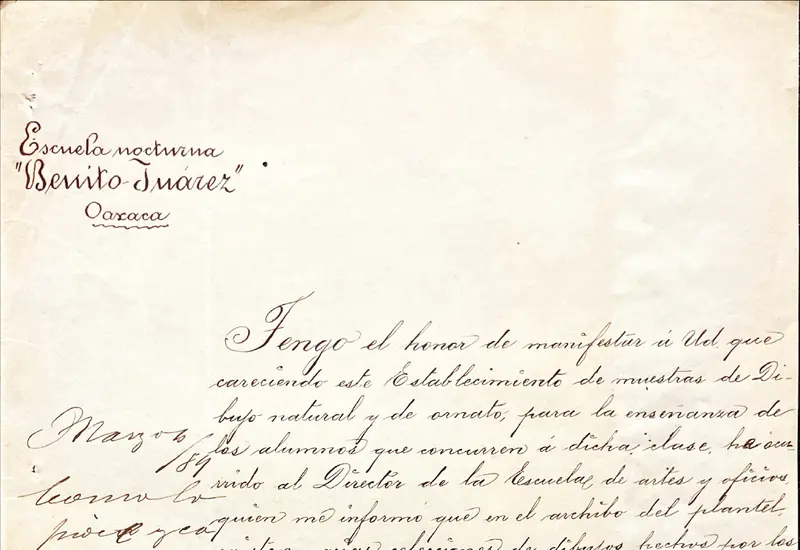 Escuela nocturna
"Benito Juárez"
Oaxaca
Tengo el honor de manifestar á Ud. que
careciendo este Establecimiento de muestras de Di-
bujo natural y de ornato, para la enseñanza de
los alumnos que concurren á dicha clase, he ocur-
rido al Director de la Escuela de artes y oficios,
quien me informó que en el archibo del plantel,
colecciones de dibujos hechos por los
Marzo
/89
Como lo